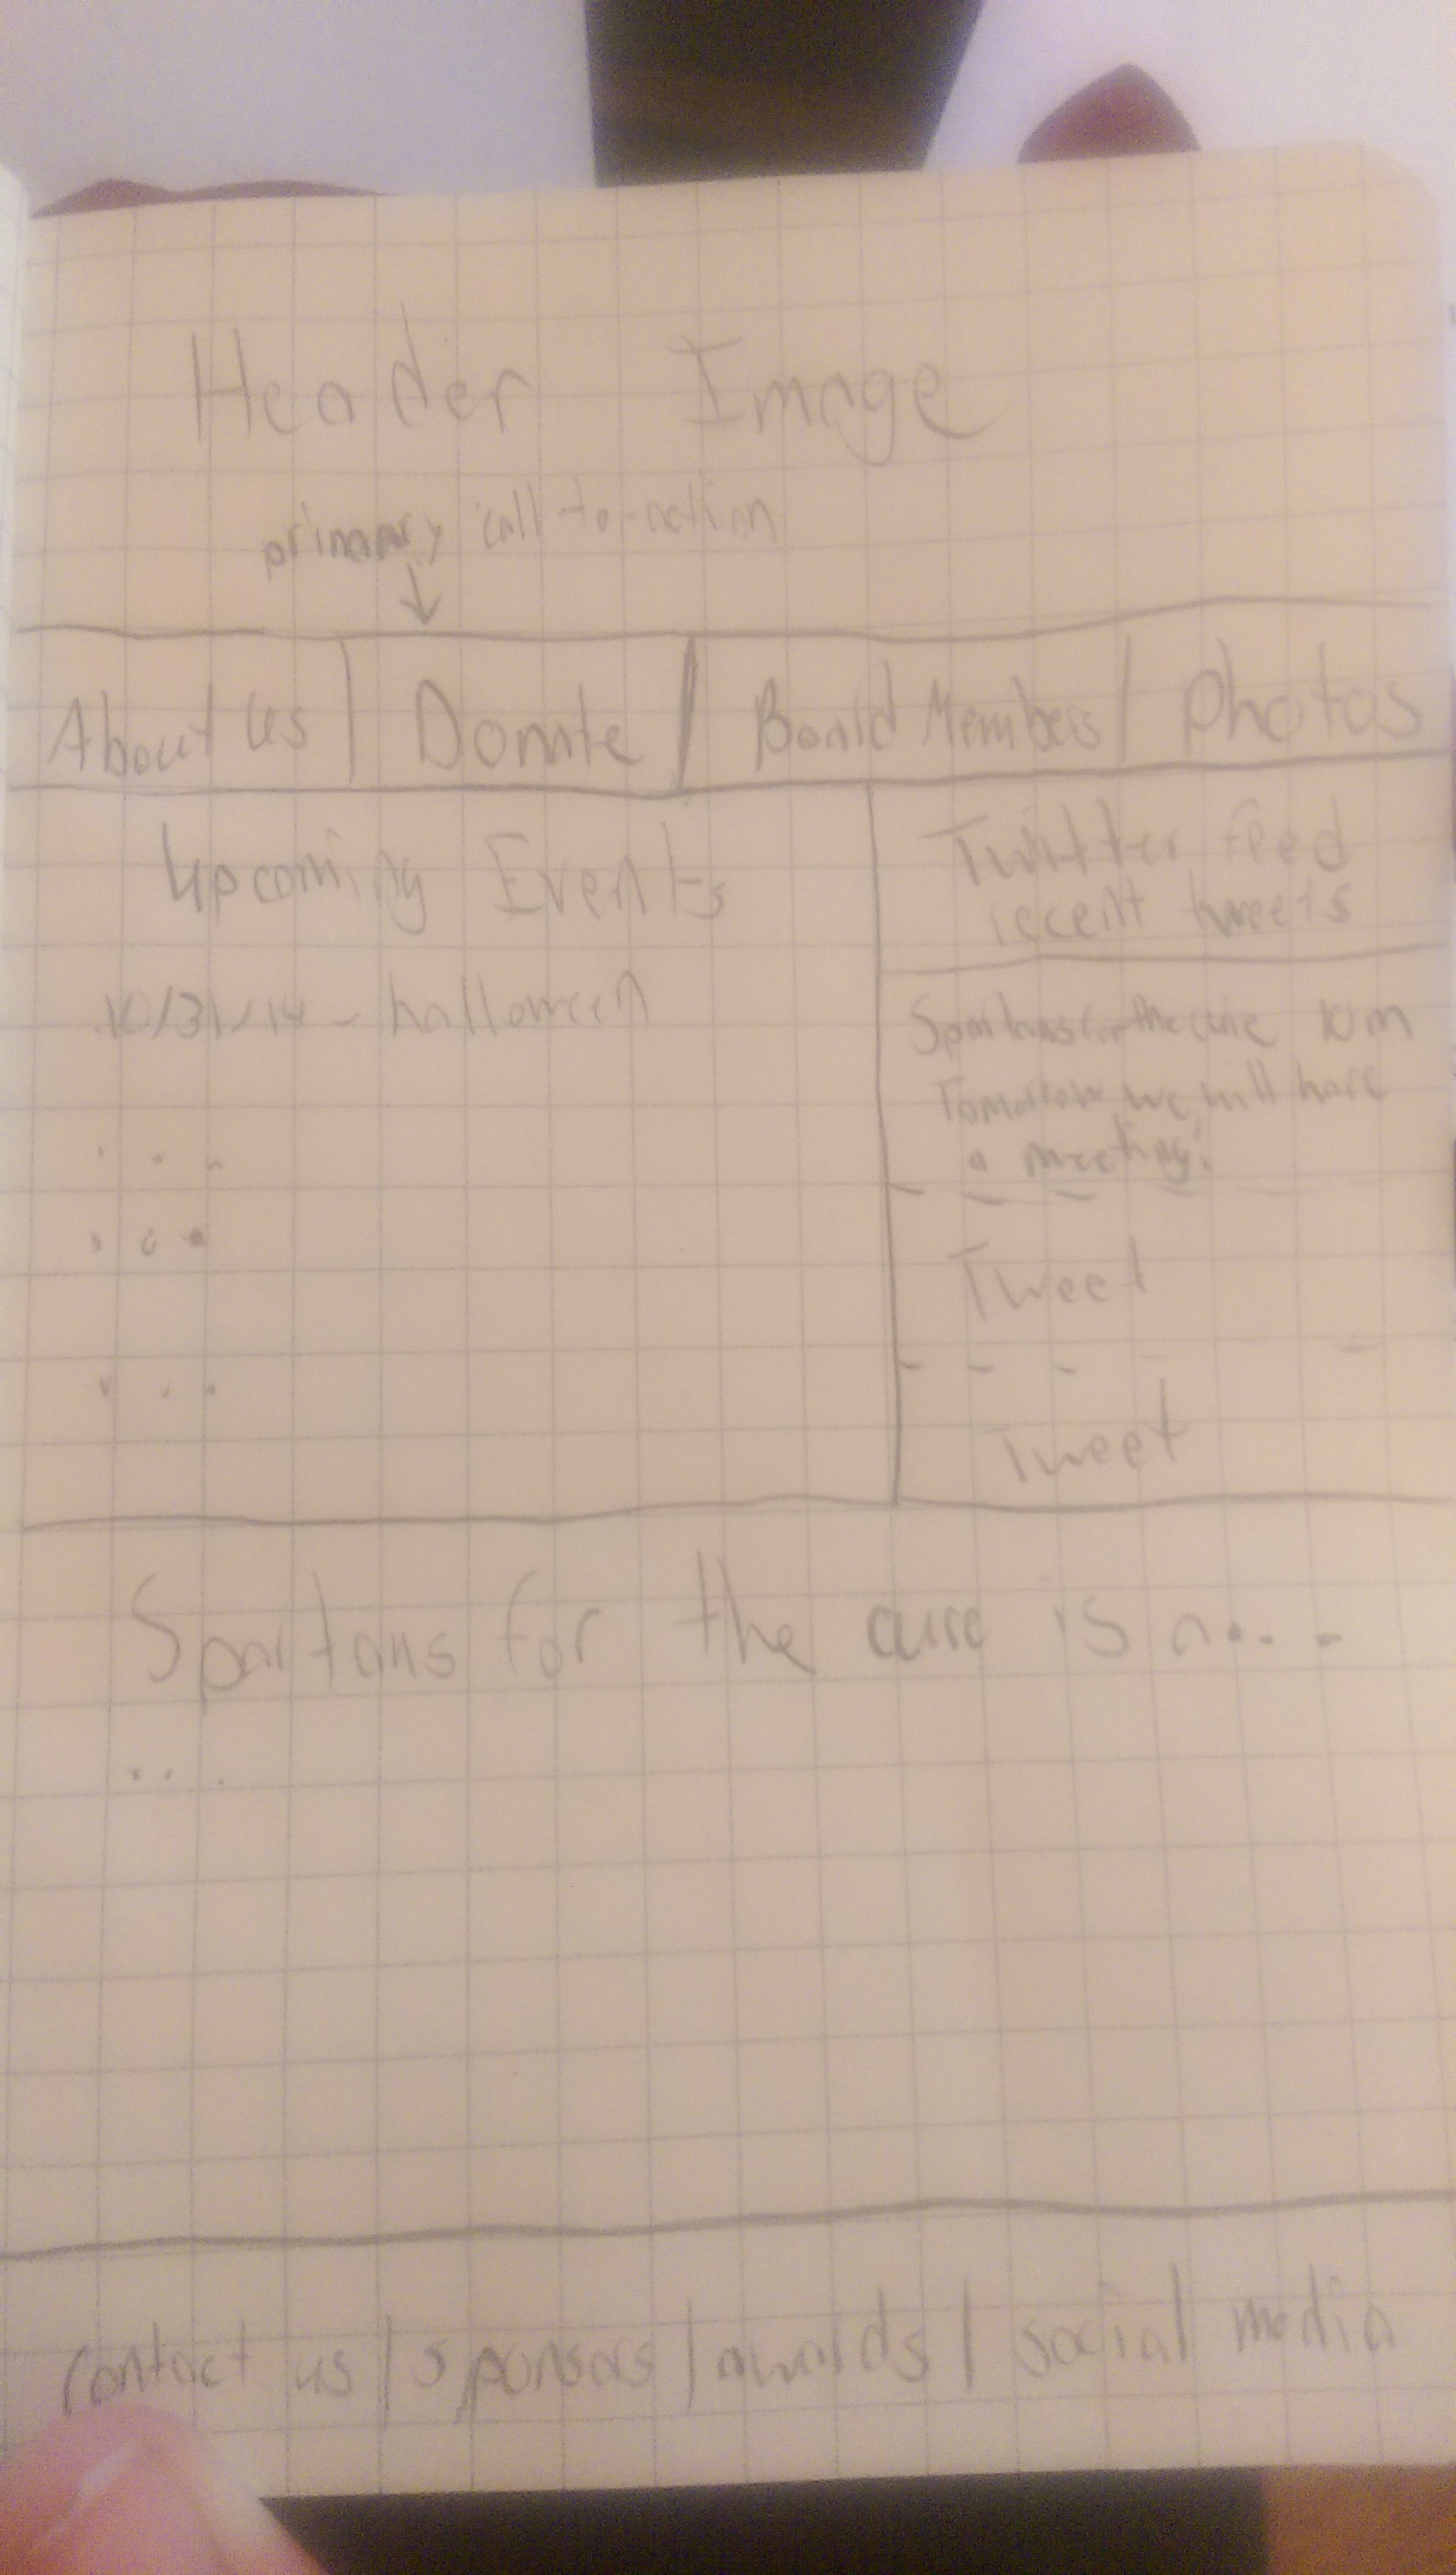 Header Image
primary call-to-action
About us | Donate | Board Members | Photos
Upcoming Events
10/31/14 - halloween
. . .
. . .
. . .
Twitter feed
recent tweets
Spartansforthecure 10m
Tomorrow we will have
a meeting!
Tweet
Tweet
Spartans for the cure is a....
...
contact us | sponsors | awards | social media